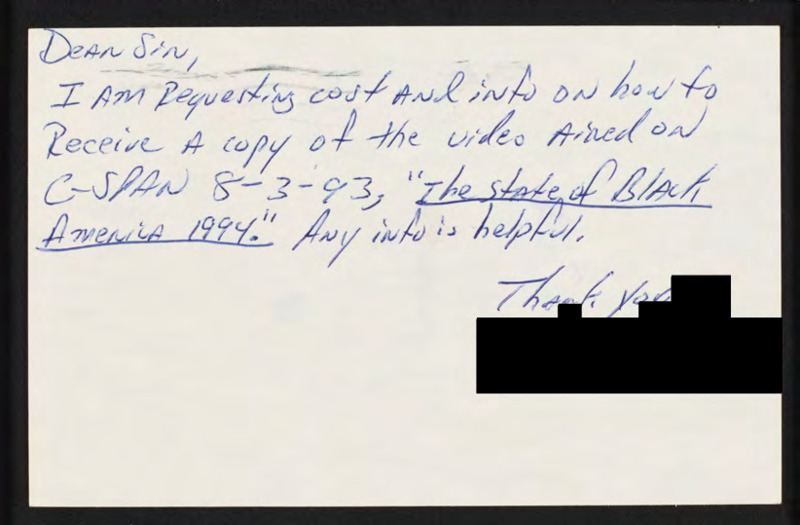 Dear Sir,
I am Requesting cost and info on how to
Receive a copy of the video aired on
C-SPAN 8-3-93, "The state of Black
America 1994." Any info is helpful.
Thank You